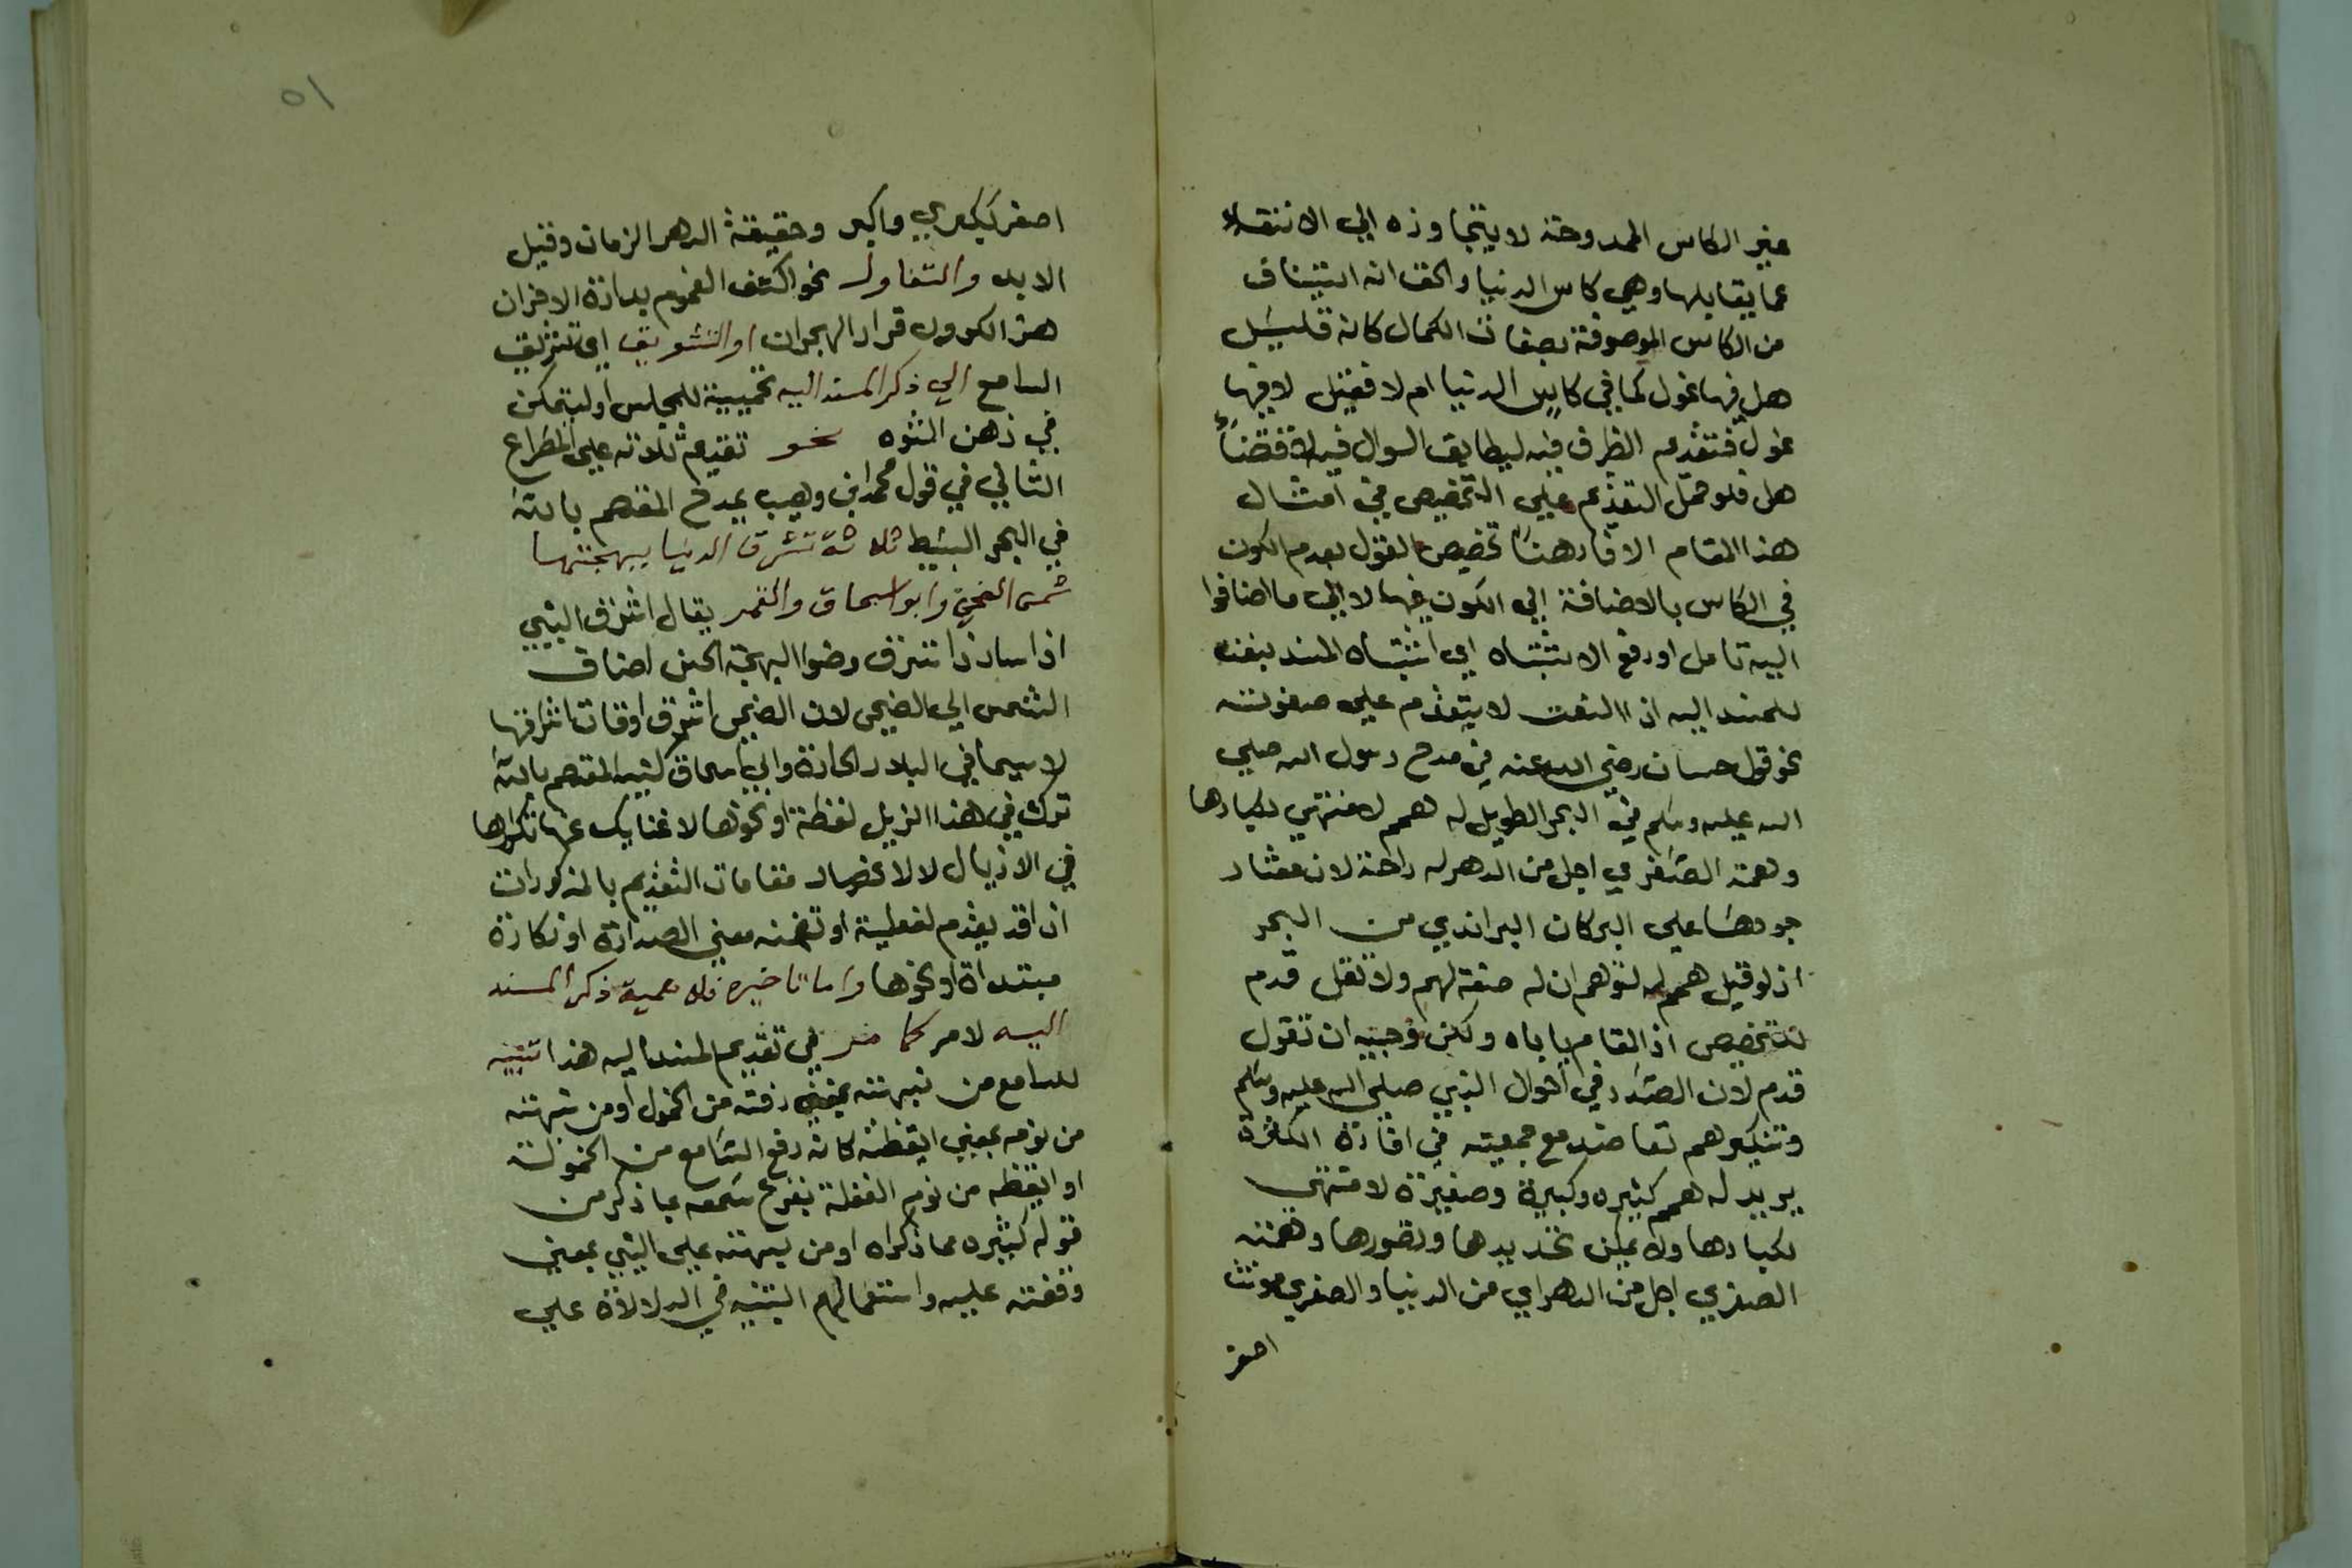 غير الكاس الممدوحة لا يتجاوزه الي الانتقاء
عما يقابلها وهي كاس الدنيا والحق انه استيناف
من الكاس الموصوفة بصفات الكمال كانه قليسَل
هل فيها غول كما في كاس الدنيا ام لا فقيل لا فيها
غول فتقديم الظرف فيه ليطابق السوال فيه
هل فلو حمل التقديم علي التخصيص في امثال
هذا المقام الافاد هنا تخصيص القول بعدم الكون
في الكاس بالاضافة الي الكون فيها لا الي ما اضافوا
اليه تامل او دفع الاشتباه اي اشتباه المسند بنعت
للمسند اليه اذ النعت لا يتقدم علي منعوته
نحو قول حسان رضي الله عنه في مدح رسول الله صلي
الله عليه وسلم في البحر الطويل له همم لا منتهي لكبارها
وهمته الصغري اجل من الدهر له راحة لان معشار
جودها علي البركان البر اندي من البحر
اذ لو قيل همم له لتوهم ان له صفة لهم ولا تقل قدم
للتخصيص اذ المقام ياباه ولكن وجيه ان تقول
قدم لان الصدر في احوال النبي صلي الله عليه وسلم
وتنكير همم تعاضد مع جمعيته في افادة الكثرة
يريد له همم كثيره وكبيرة وصغيرة لا منتهي
لكبارها ولا يمكن تحديدها وتصورها وهمته
الصغري اجل من الدهر اي من الدنيا والصغري مونث
اصغر
٥١
اصغر ككبري واكبر وحقيقة الدهر الزمان وقيل
الابد والتفاول نحو اكشف الغموم
قرار الهجران او التشويق اي تشويق
السامع الي ذكر المسند اليه للمجلس او ليتمكن
في ذهن نحو تقديم ثلاثة علي المصراع
الثاني في قول محمد ابن وهيب يمدح المعتصم بالله
في البحر البسيط ثلاثة تشرق الدنيا ببهجتها
شمس الضحي وابو اسحاق والقمر يقال اشرق الشي
اذا صار ذا شرق وضوا البهجة الحسن اضاف
الشمس الي الضحي لان الضحي اشرق اوقات اشراقها
لا سيما في البلاد الحارة وابي اسحاق كنية المعتصم بالله
ترك في هذا الذيل لفظة او نحوها لاغنايك عنها تكرارها
في الاذيال لا لانحصار مقامات التقديم بالمذكورات
اذ قد يقدم لفعلية او تضمنه معني الصدارة او نكارة
مبتداة او نحوها واما تاخيره فلاهمية ذكر المسند
اليه لامر كما مر في تقديم المسند اليه هذا تنبيه
للسامع من نبهته بمعني رفته من الخمول او من نبهته
من نومه بمعني ايقظته كانه رفع السامع من الخمولت
او ايقظه من نوم الغفلة بقرع سمعه بما ذكر من
قوله كثيره مما ذكراه او من نبهته علي الشي بمعني
وقفته عليه واستعمالهم التنبيه في الدلالة علي